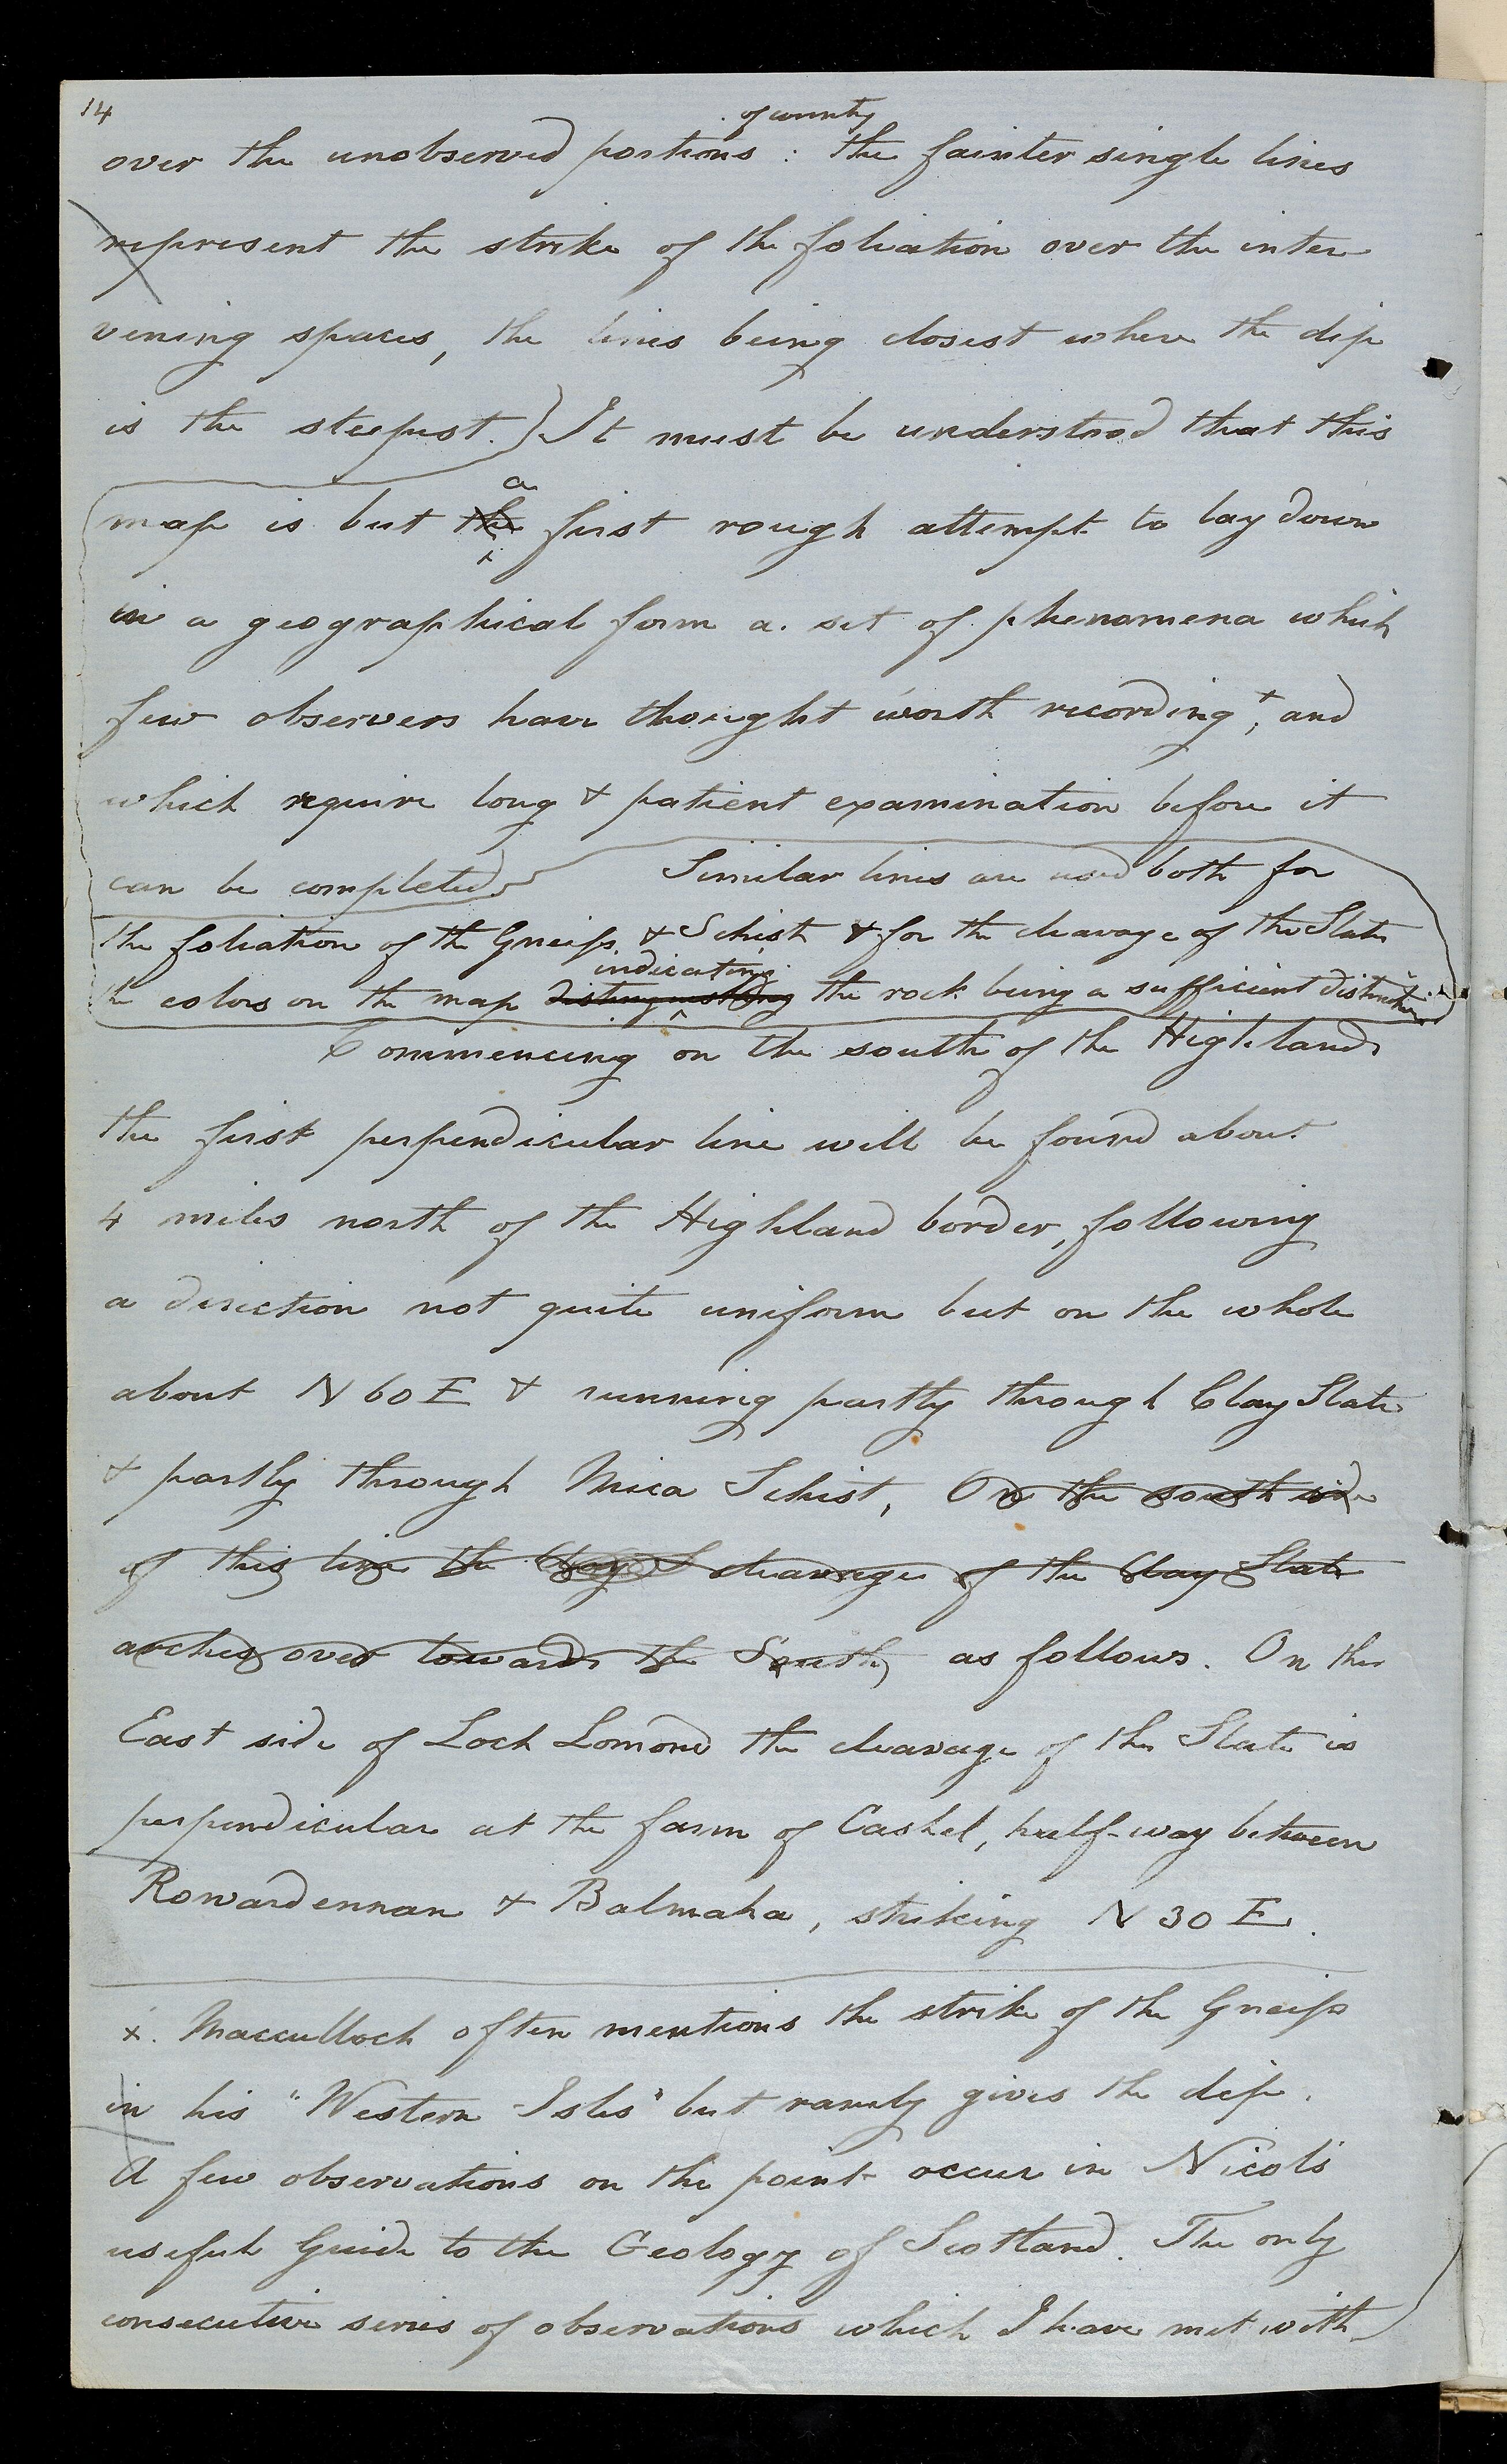 14
of country
over the unobserved portions : the fainter single lines
represent the strike of the foliation over the inter
vening spaces, the lines being closest where the dip
is the steepest.) It must be understood that this
a
map is but the first rough attempt to lay down
in a geographical form a set of phenomena which
few observers have thought worth recording +, and
which require long & patient examination before it
can be completed. Similar lines are used both for
the foliation of the Gneiss & Schist & for the cleavage of the Slate
indicating
the colors on the map distinguishing the rock being a sufficient distinction.
Commencing on the south of the Highlands
the first perpendicular line will be found about
4 miles north of the Highland border, following
a direction not quite uniform but on the whole
about N 60 E & running partly through Clay Slate
& partly through Mica Schist, On the south side
of this line the Clay S cleavage of the Clay Slate
arches over towards the South, as follows. On the
East side of Loch Lomond the cleavage of the Slate is
perpendicular at the farm of Cashel, half-way between
Rowardennan & Balmaha, striking N 30 E.
x. Macculloch often mentions the strike of the Gneiss
in his "Western Isles" but rarely gives the dip.
A few observations on the point occur in Nicol's
useful Guide to the Geology of Scotland. The only
consecutive series of observations which I have met with